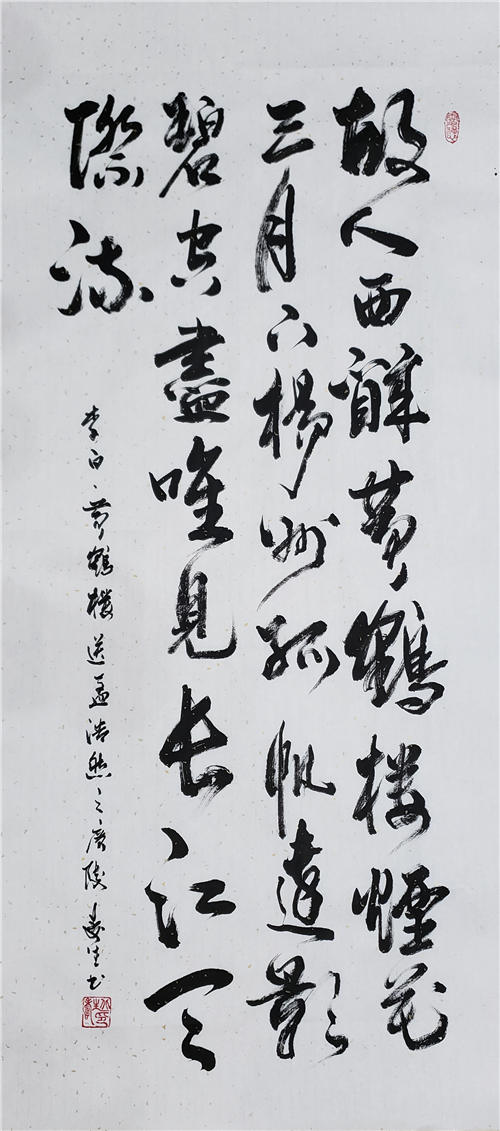 故人西辭黄鶴楼煙花
三月下楊州孤帆遠影
碧空盡唯見长江天
際流
李白、黄鶴楼送孟浩然之廣陵 生书